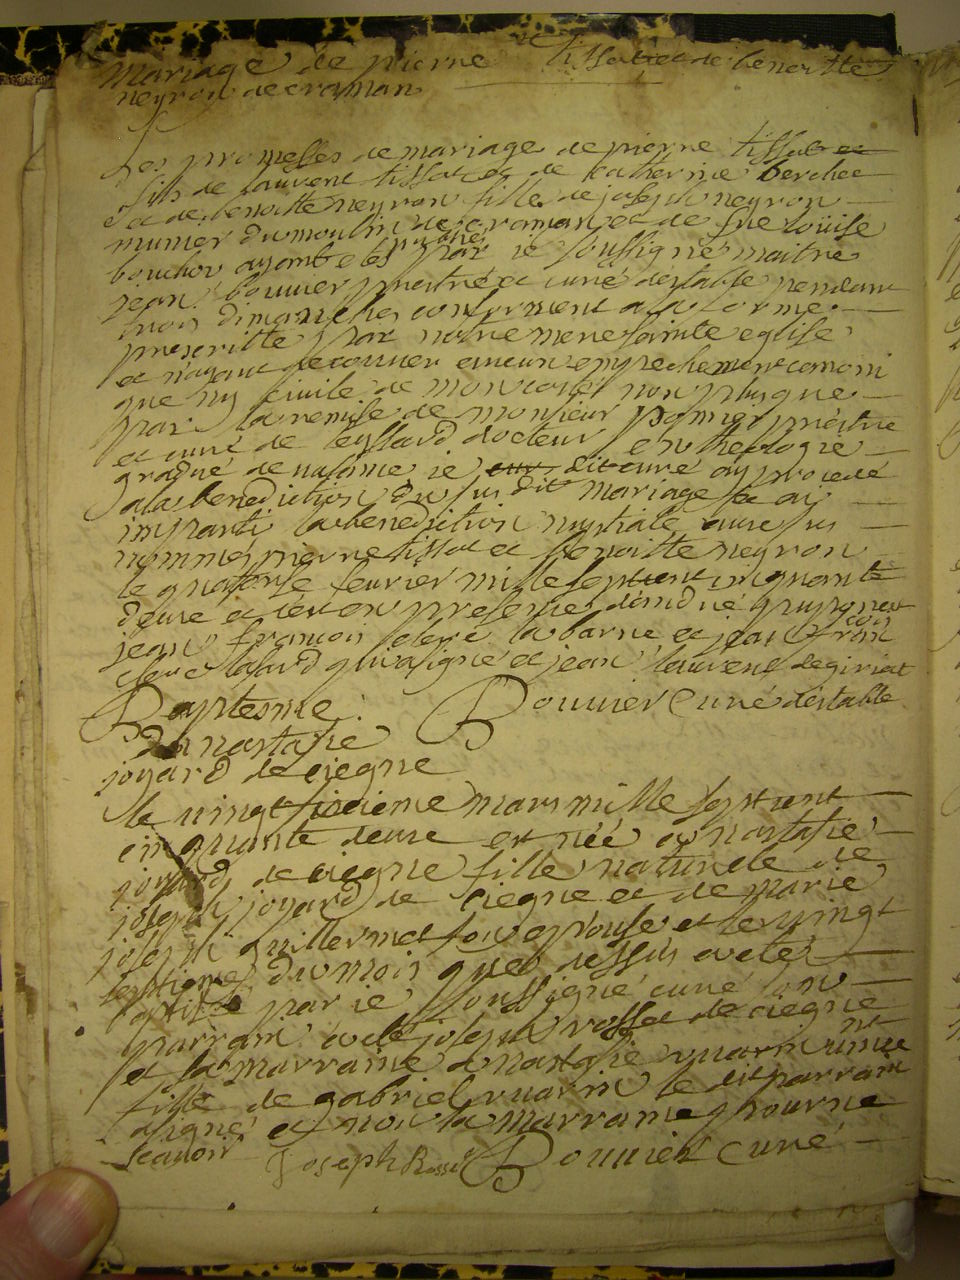 mariage de pierre tissot et de benoitte
neyron de craman
Les promesses de mariage de pierre tissot et
fils de laurent tissot et de Catherine berchet
et de benoitte neyron fille de joseph neyron
munier du moulin de craman et de fue loüise
bouchor ayant etés publiés par ie soussigné maitre
jean bouuier prestre et curé destable pendant
trois dimanches conforment a la forme
prescritte par notre mere sainte eglise
et n'ayant decouuer aucun empechement canoni
que ny ciuile de mon coté non plus que
par la remise de monsieur pomier prestre
et curé de leyssard docteur en theologie
gradué de ualance ie dit curé ay procedé
a la benediction du sus dit mariage et ay
imparti la benediction nuptiale aux sus
nommes pierre tissot et benoitte neyron
le quatorse feurier mille sept cent cinquante
deux et ce en presence d'andré
jean francois la barne et jean fran cois
qui a signé et jean laurent degiriat
Baptesme Bouuier Curé destable
d'anastasie
joyard de ciegne
le uingt sixieme mars mille sept cent
cinquante deux est née anastasie
joyard de ciegne fille naturele de
joseph joyard de ciegne et de marie
joseph guillermet son epouse et le uingt
septieme du mois que dessus a eté
baptisée par ie soussigné curé son
parrain a eté joseph rosset de ciegne
et la marraine anastasie uuarin
fille de gabriel uuarin le dit parrain
a signé et non la marraine pour ne
scauoir Joseph Rosset Bouuier Curé